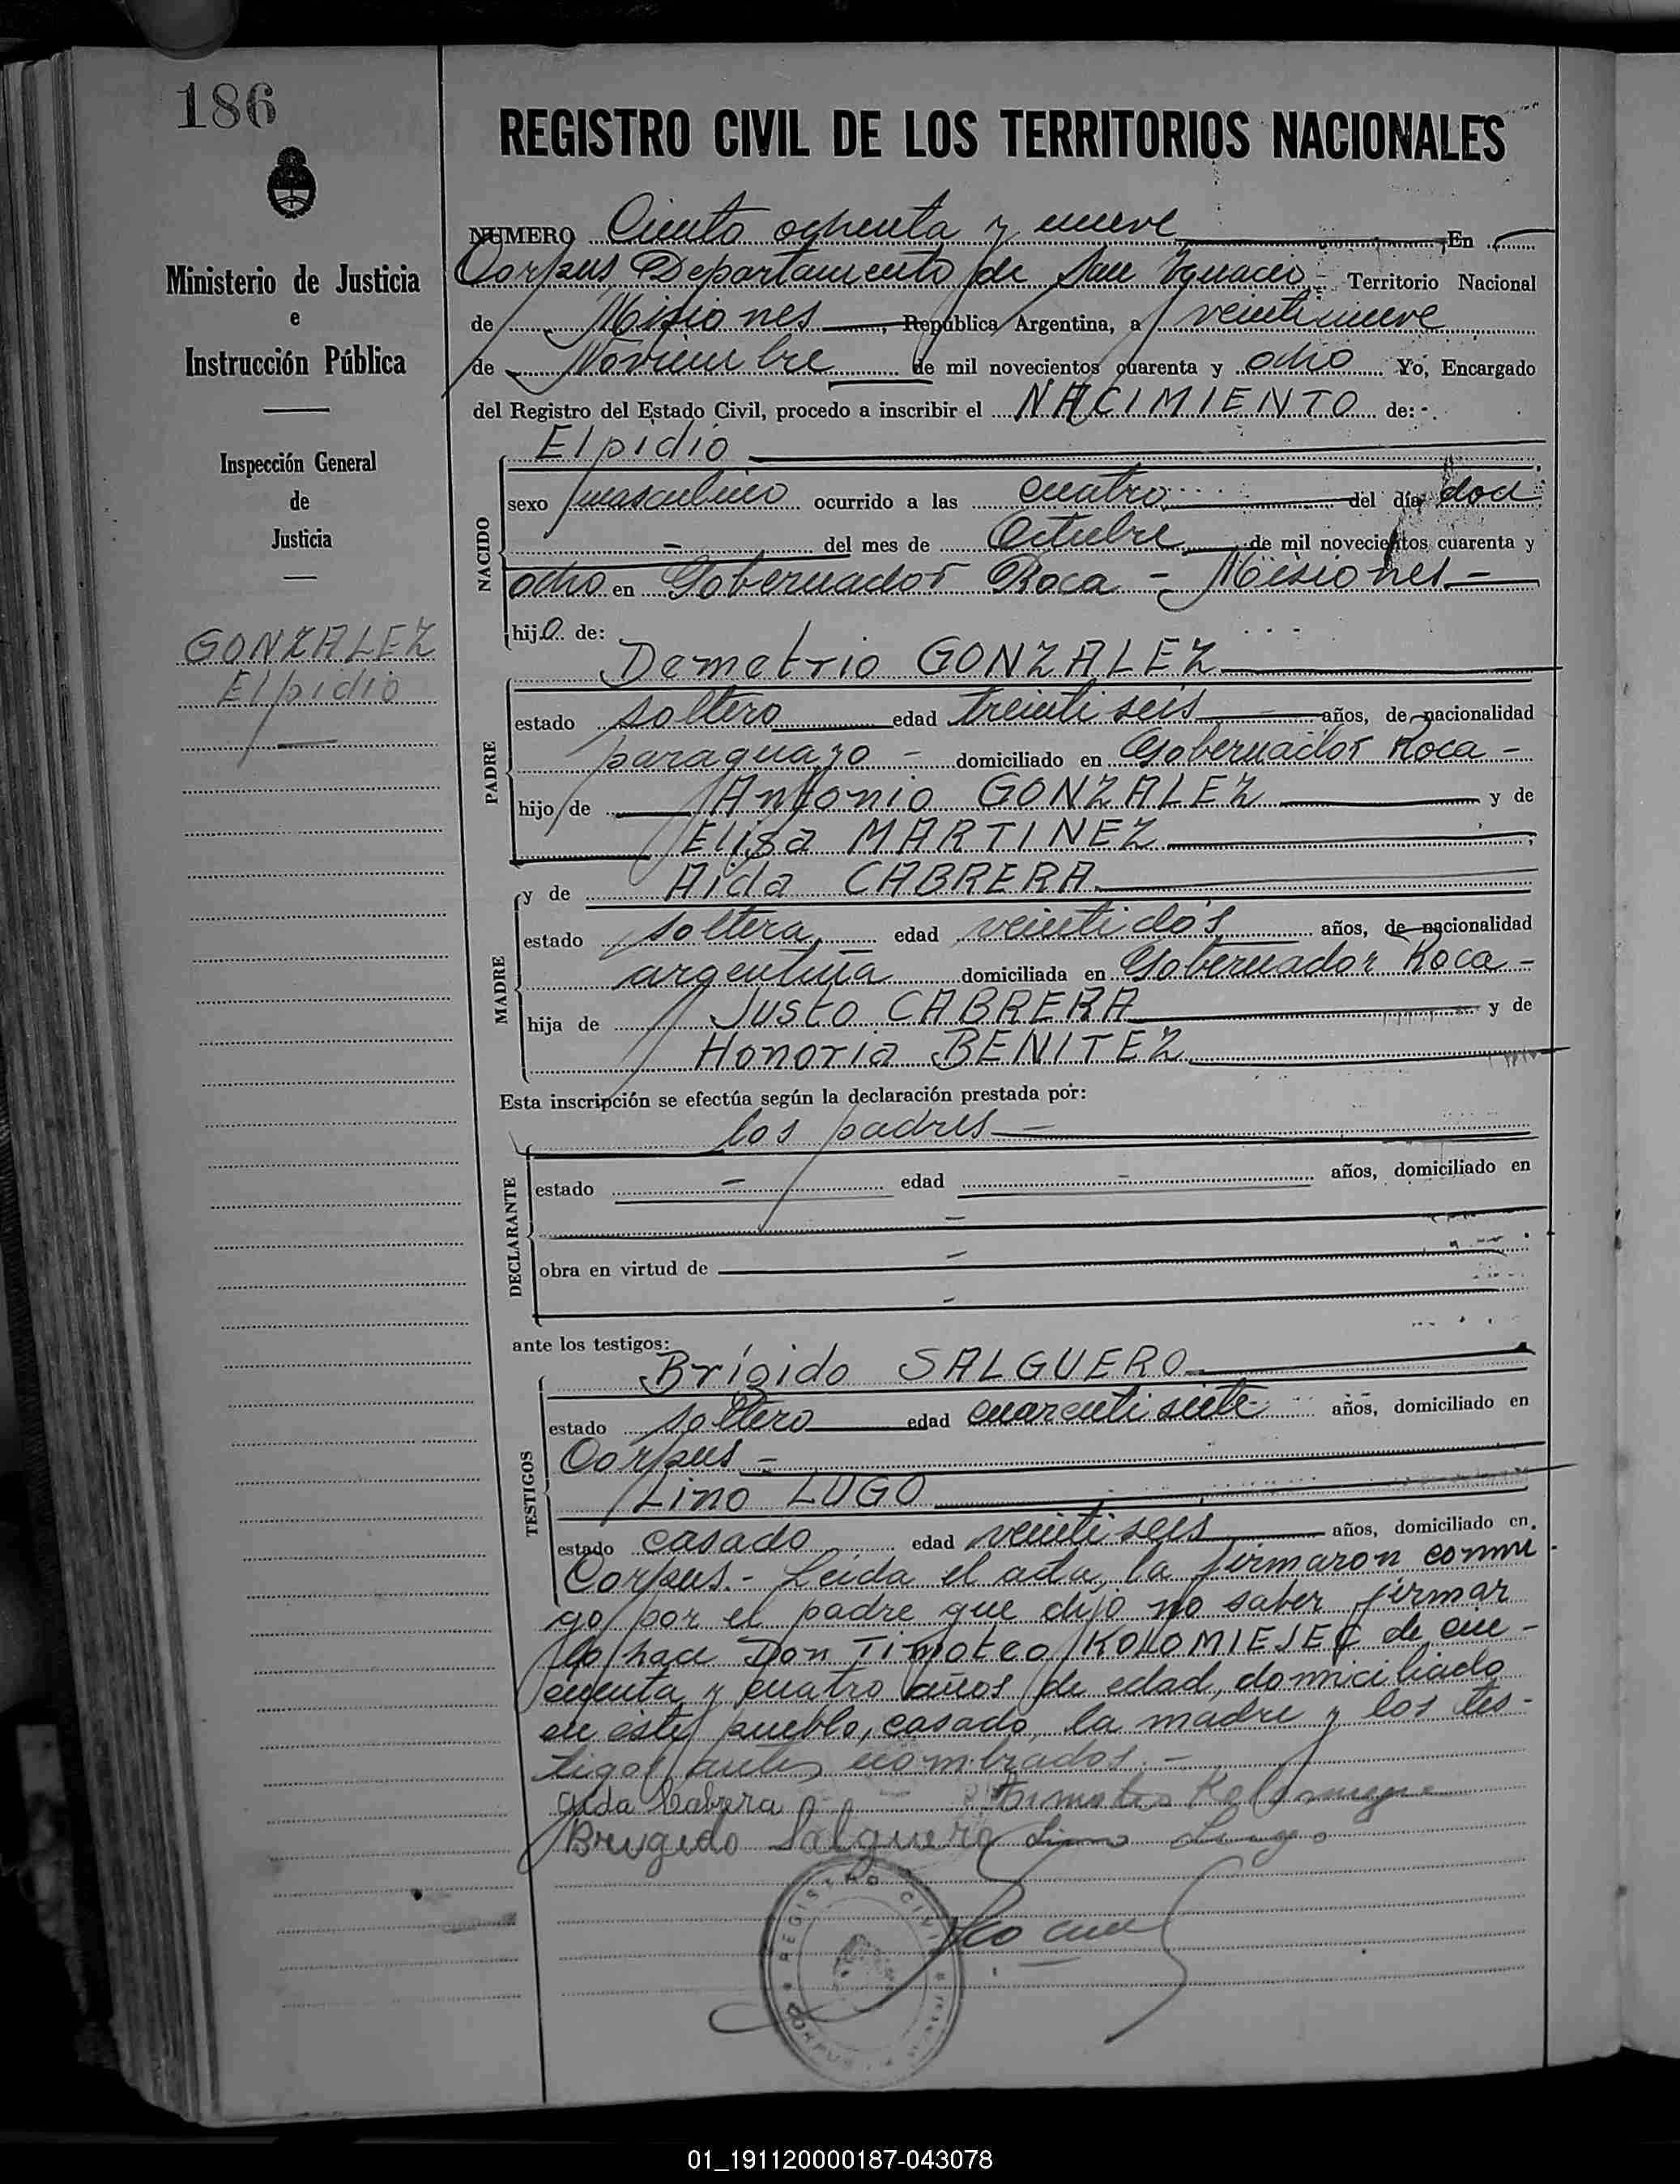 186
REGISTRO CIVIL DE LOS TERRITORIOS NACIONALES
Ministerio de Justicia
e
Instrucción Pública
Inspección General
de
Justicia
GONZALEZ
Elpidio
NUMERO Ciento ochenta y nueve En
Corpus Departamento de San Ignacio - Territorio Nacional
de Misiones, República Argentina, a veintinueve
de Noviembre de mil novecientos cuarenta y ocho Yo, Encargado
del Registro del Estado Civil, procedo a inscribir el NACIMIENTO de:-
NACIDO
Elpidio
sexo masculino ocurrido a las cuatro del día doce
- del mes de Octubre de mil novecientos cuarenta y
ocho en Gobernador Roca - Misiones -
hijo de:
PADRE
Demetrio GONZALEZ
estado soltero edad treintiseis años, de nacionalidad
paraguayo - domiciliado en Gobernador Roca -
hijo de Antonio GONZALEZ y de
Elisa MARTINEZ
MADRE
y de Aida CABRERA
estado soltera edad veintidós años, de nacionalidad
argentina domiciliada en Gobernador Roca -
hija de Justo CABRERA y de
Honoria BENITEZ
Esta inscripción se efectúa según la declaración prestada por:
los padres
DECLARANTE
estado - edad - años, domiciliado en
-
obra en virtud de -
-
ante los testigos:
TESTIGOS
Brígido SALGUERO
estado soltero edad cuarentisiete años, domiciliado en
Corpus -
Lino LUGO
estado casado edad veintiseis años, domiciliado en
Corpus.- Leida el acta, la firmaron conmi
go por el padre que dijo no saber firmar
lo hace Don Timoteo KOLOMIEJEC de cin-
cuenta y cuatro años de edad, domiciliado
en éste pueblo, casado, la madre y los tes-
tigos antes nombrados.-
Aida Cabrera
Brugido Salguero Lino Lugo
REGISTRO CIVIL
CORPUS
01_191120000187-043078